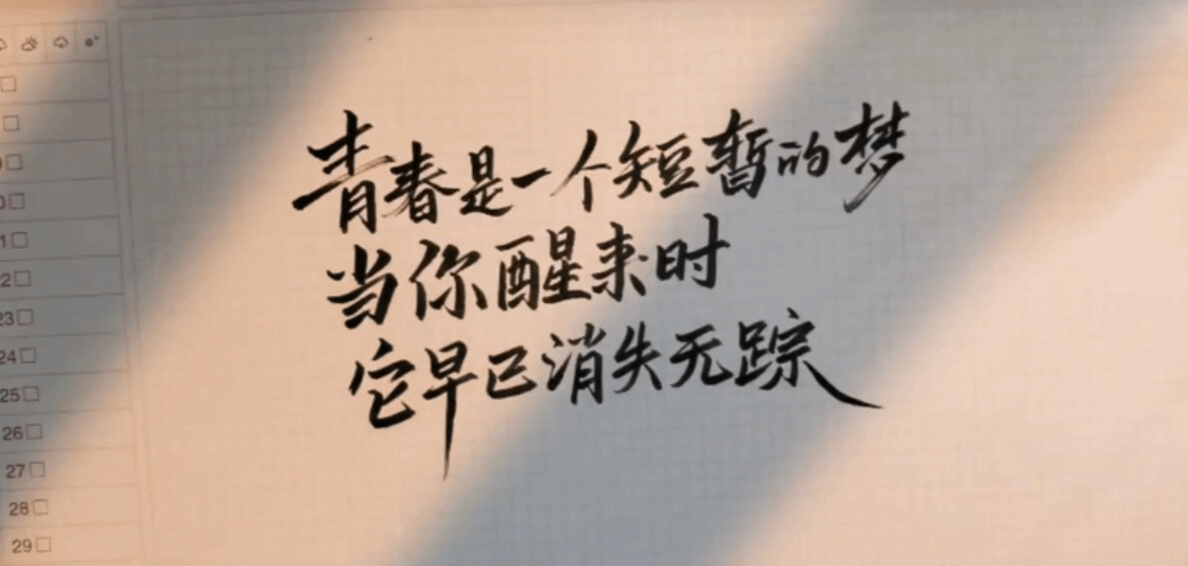 青春是一个短暂的梦
当你醒来时
它早已消失无踪
25
26
27
28
29